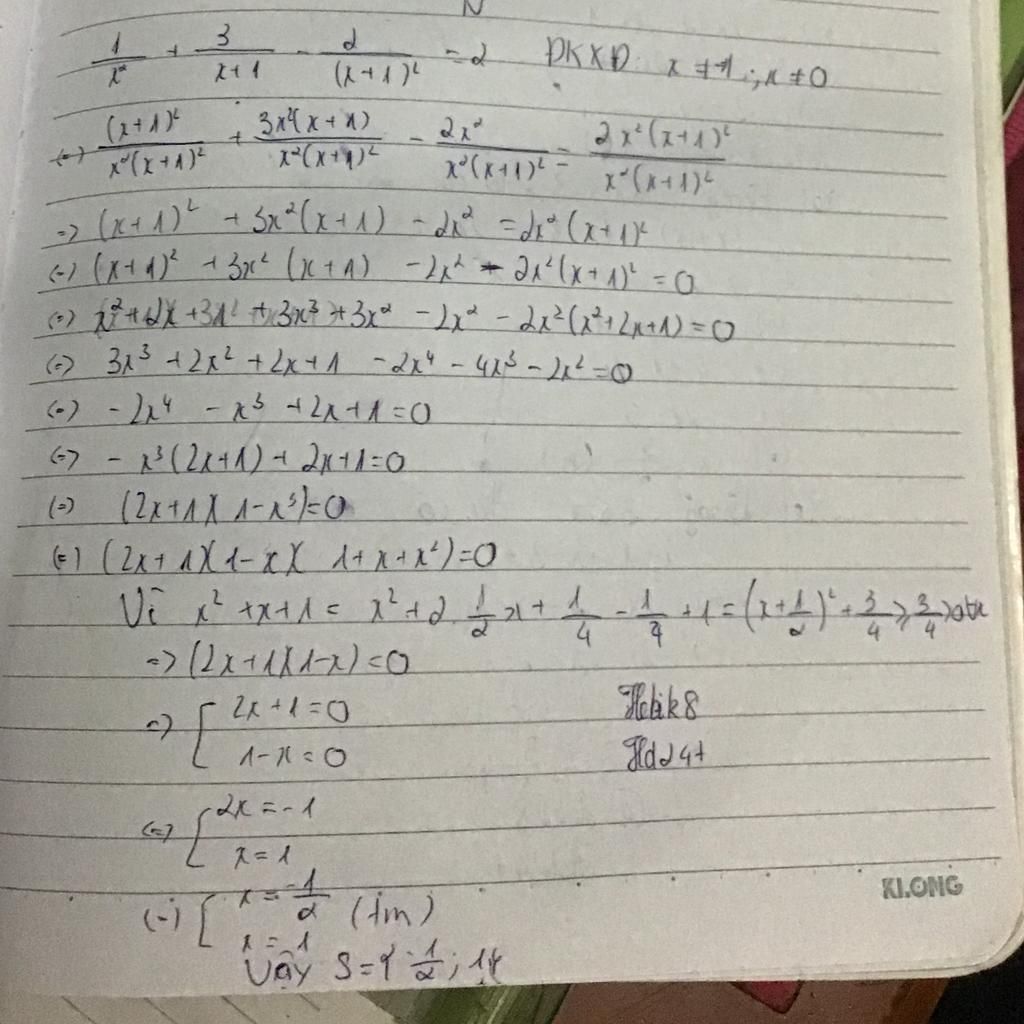 1/x² + 3/(x+1) - 2/(x+1)² = 2 ĐKXĐ x ≠ -1; x ≠ 0
(=) (x+1)²/x²(x+1)² + 3x²(x+1)/x²(x+1)² - 2x²/x²(x+1)² = 2x²(x+1)²/x²(x+1)²
=> (x+1)² + 3x²(x+1) - 2x² = 2x²(x+1)²
(=) (x+1)² + 3x²(x+1) - 2x² - 2x²(x+1)² = 0
(=) x² + 2x + 1 + 3x³ + 3x² - 2x² - 2x²(x²+2x+1) = 0
(=) 3x³ + 2x² + 2x + 1 - 2x⁴ - 4x³ - 2x² = 0
(=) - 2x⁴ - x³ + 2x + 1 = 0
(=) - x³(2x+1) + 2x+1 = 0
(=) (2x+1)(1-x³) = 0
(=) (2x+1)(1-x)(1+x+x²) = 0
Vì x² + x + 1 = x² + 2 1/2 x + 1/4 - 1/4 + 1 = (x + 1/2)² + 3/4 ≥ 3/4 >0
=> (2x+1)(1-x) = 0
=> [ 2x+1 = 0
1-x = 0
Hd247
(=) [ 2x = -1
x = 1
KLONG
(=) [ x = -1/2 (tm)
x = 1
Vậy S = { -1/2 ; 1}